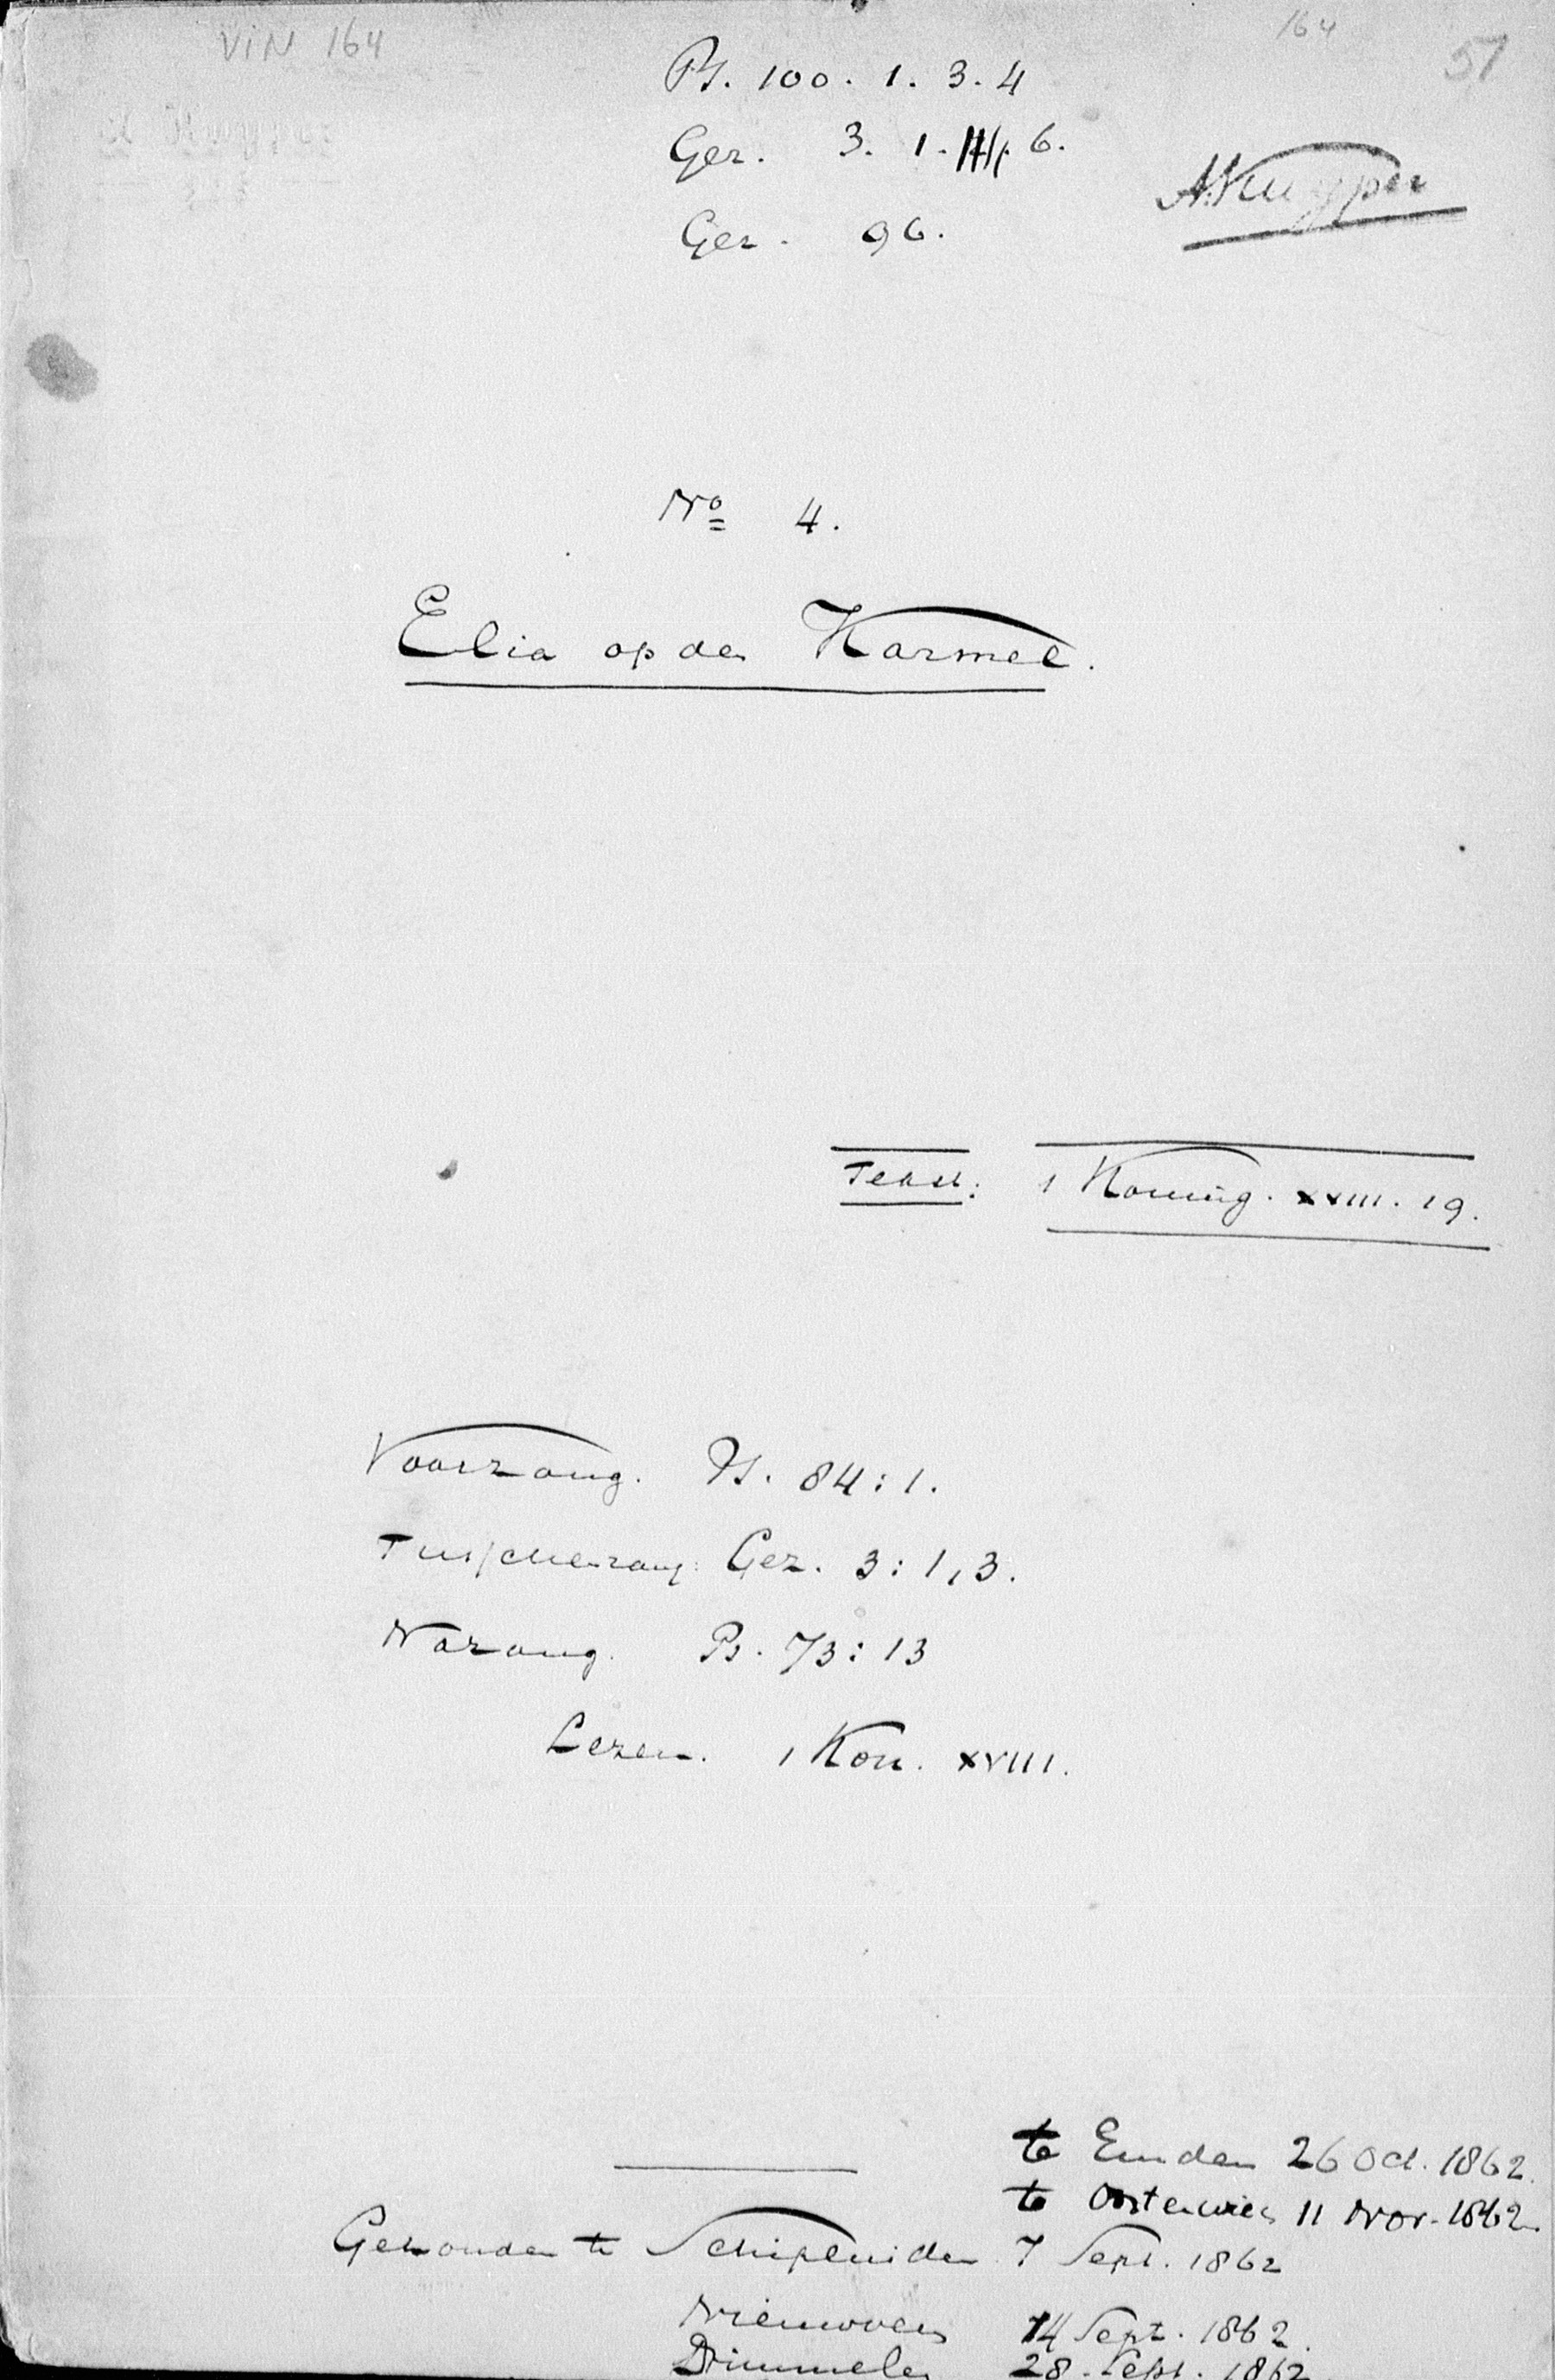 VIN 164
164
51
Ps. 100. 1. 3. 4
Gez. 3. 1. 6.
A. Kuyper
Gez. 96.
No 4.
Elia op den Karmel.
Tekst: 1 Koning. XVIII. 19.
Voorzang. Ps. 84:1.
Tusschenzang: Gez. 3:1,3.
Nazang. Ps. 73:13
Lezen. 1 Kon. XVIII.
te Emden 26 Oct. 1862.
te 11 Nov. 1862.
Gehouden te Schipluiden 7 Sept. 1862
Nieuwveen 14 Sept. 1862.
Drimmelen 28. Sept. 1862